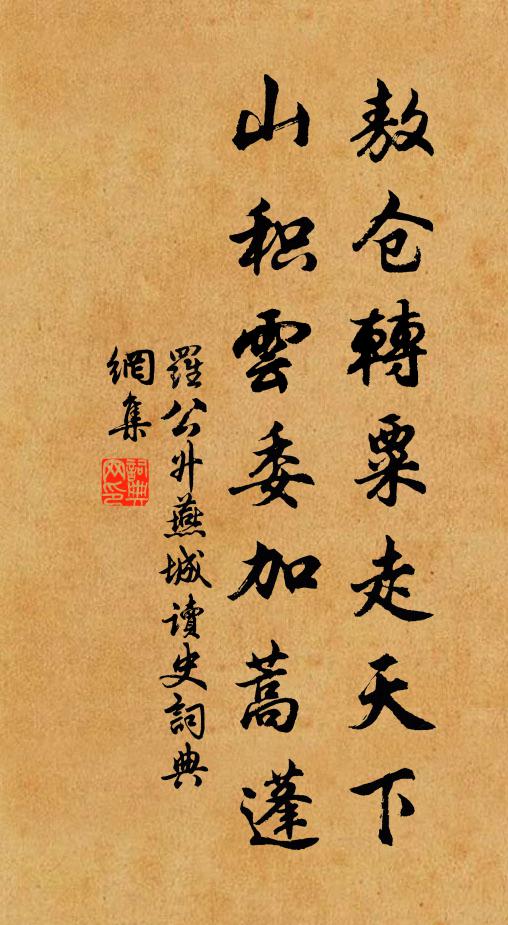 敖仓轉粟走天下
山积雲委加蒿蓬
羅公升燕城讀史詞典
網集
詞典网印